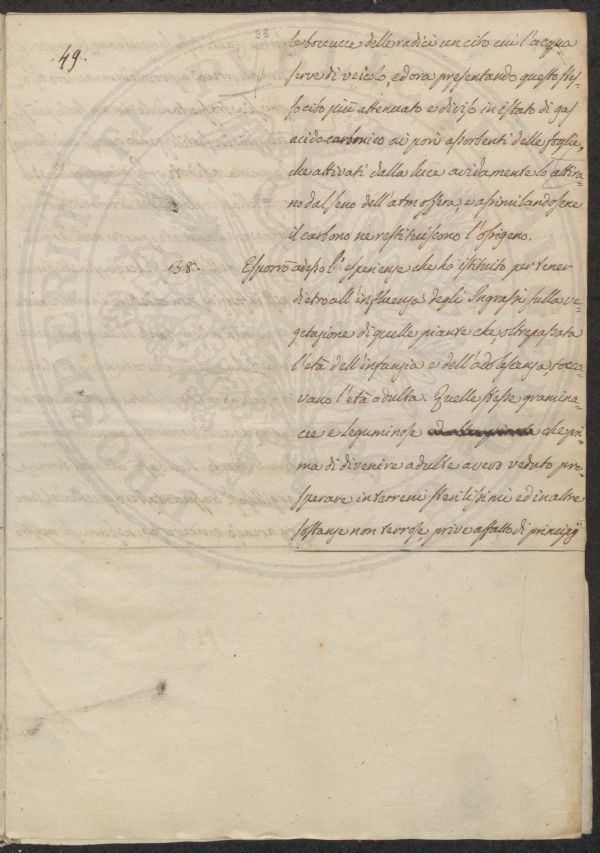 38
49.
le boccucce delle radici con cibo cui l'acqua
serve di veicolo, ed ora presentando questo stes-
so cibo più attenuato e diviso in istato di gas
acido carbonico ai pori assorbenti delle foglie,
che attivati dalla luce avidamente lo attira-
no dal seno dell'atmosfera, e assimilandosene
il carbono ne restituiscono l'ossigeno.
138. Esporrò adesso l'esperienze che ho istituito per tener
dietro all'influenza degli Ingrassi sulla ve-
getazione di quelle piante che, oltrepassata
l'età dell'infanzia e dell'adolescenza, tocca-
vano l'età adulta. Quelle stesse gramina-
cee e leguminose che pri-
ma di divenire adulte avevo veduto pro-
sperare in terreni sterilissimi ed in altre
sostanze non terrose, prive affatto di principij